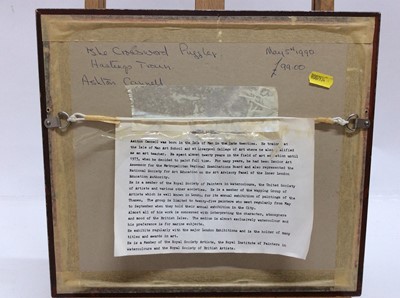 The Crossword Puzzler May 5th 1990
Hastings Town £99.00
Ashton Cannell
Ashton Cannell was born in the Isle of Man in the late twenties. He trained at
the Isle of Man Art School and at Liverpool College of Art where he also qualified
as an art teacher. He spent almost twenty years in the field of art education until
1973, when he decided to paint full time. For many years, he had been Senior Art
Assessor for the Metropolitan Regional Examinations Board and also represented the
National Society for Art Education on the Art Advisory Panel of the Inner London
Education Authority.
He is a member of the Royal Society of Painters in Watercolours, the United Society
of Artists and various other societies. He is a member of the Wapping Group of
Artists which is well known in London for its annual exhibition of paintings of the
Thames. The group is limited to twenty-five painters who meet regularly from May
to September when they hold their annual exhibition in the City.
Almost all of his work is concerned with interpreting the character, atmosphere
and mood of the British Isles. The medium is almost exclusively watercolour and
his preference is for marine subjects.
He exhibits regularly with the major London Exhibitions and is the holder of many
titles and awards in art.
He is a Member of the Royal Society Artists, the Royal Institute of Painters in
Watercolours and the Royal Society of British Artists.